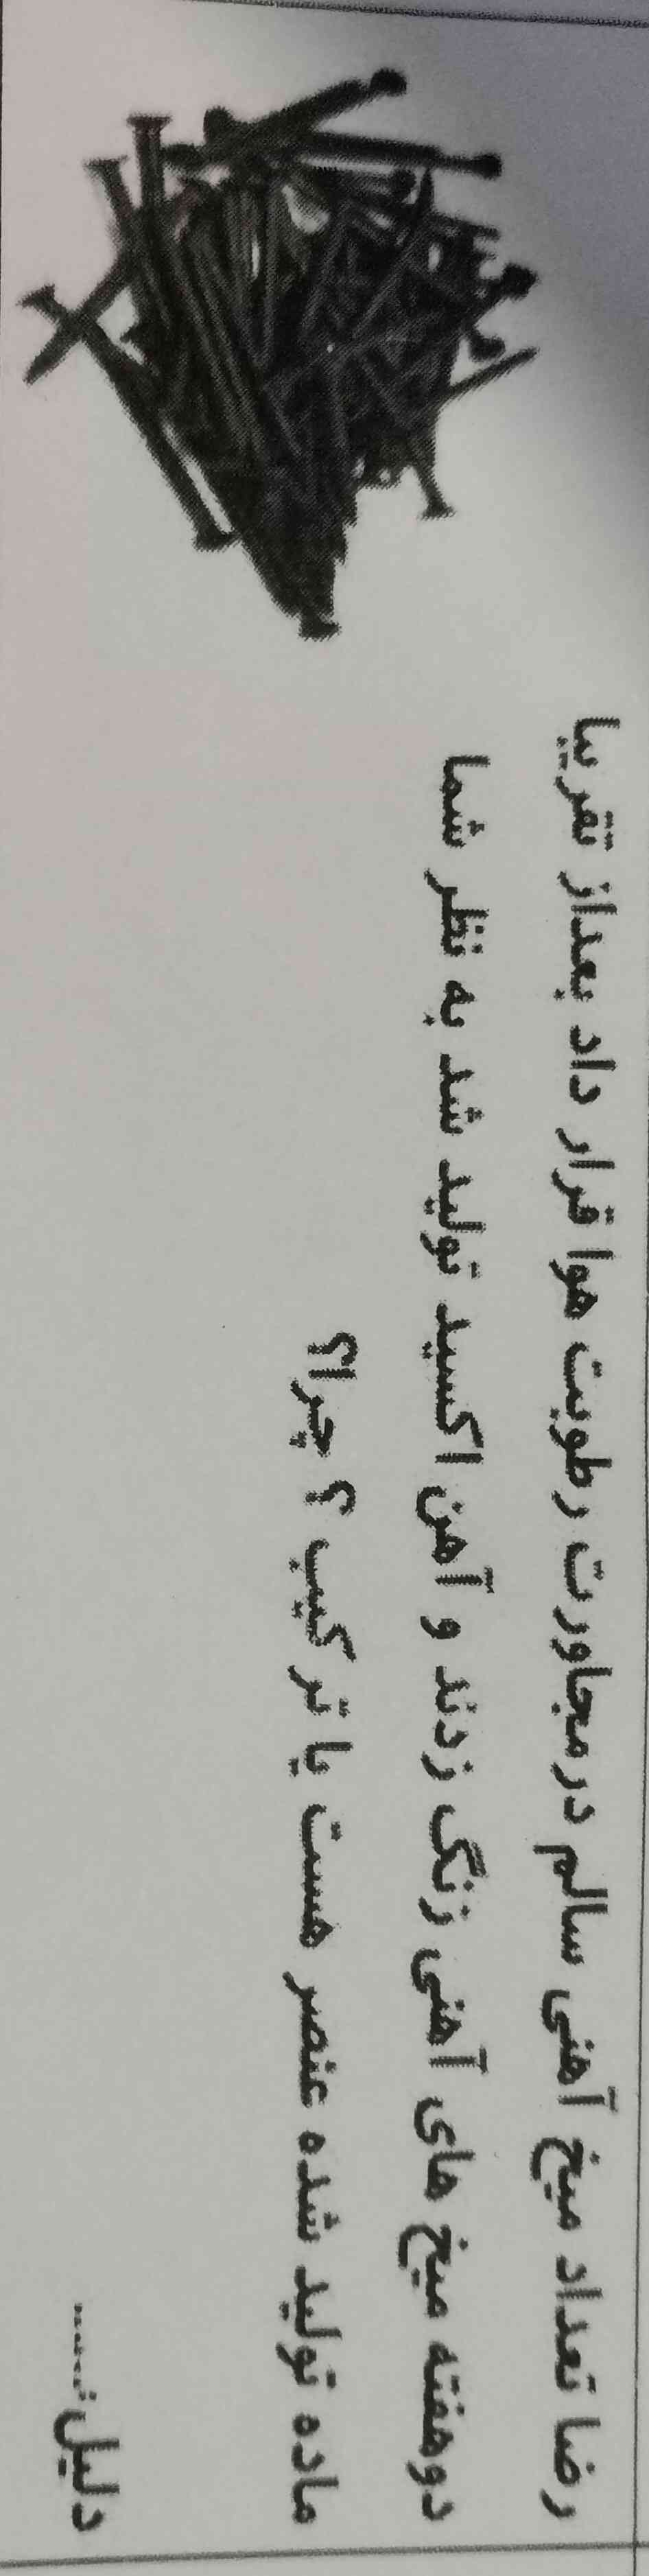 رضا تعداد میخ آهنی سالم درمجاورت رطوبت هوا قرار داد بعداز تقریبا
دوهفته میخ های آهنی زنگ زدند و آهن اکسید تولید شد به نظر شما
ماده تولید شده عنصر هست یا ترکیب ؟ چرا؟
دلیل:.....